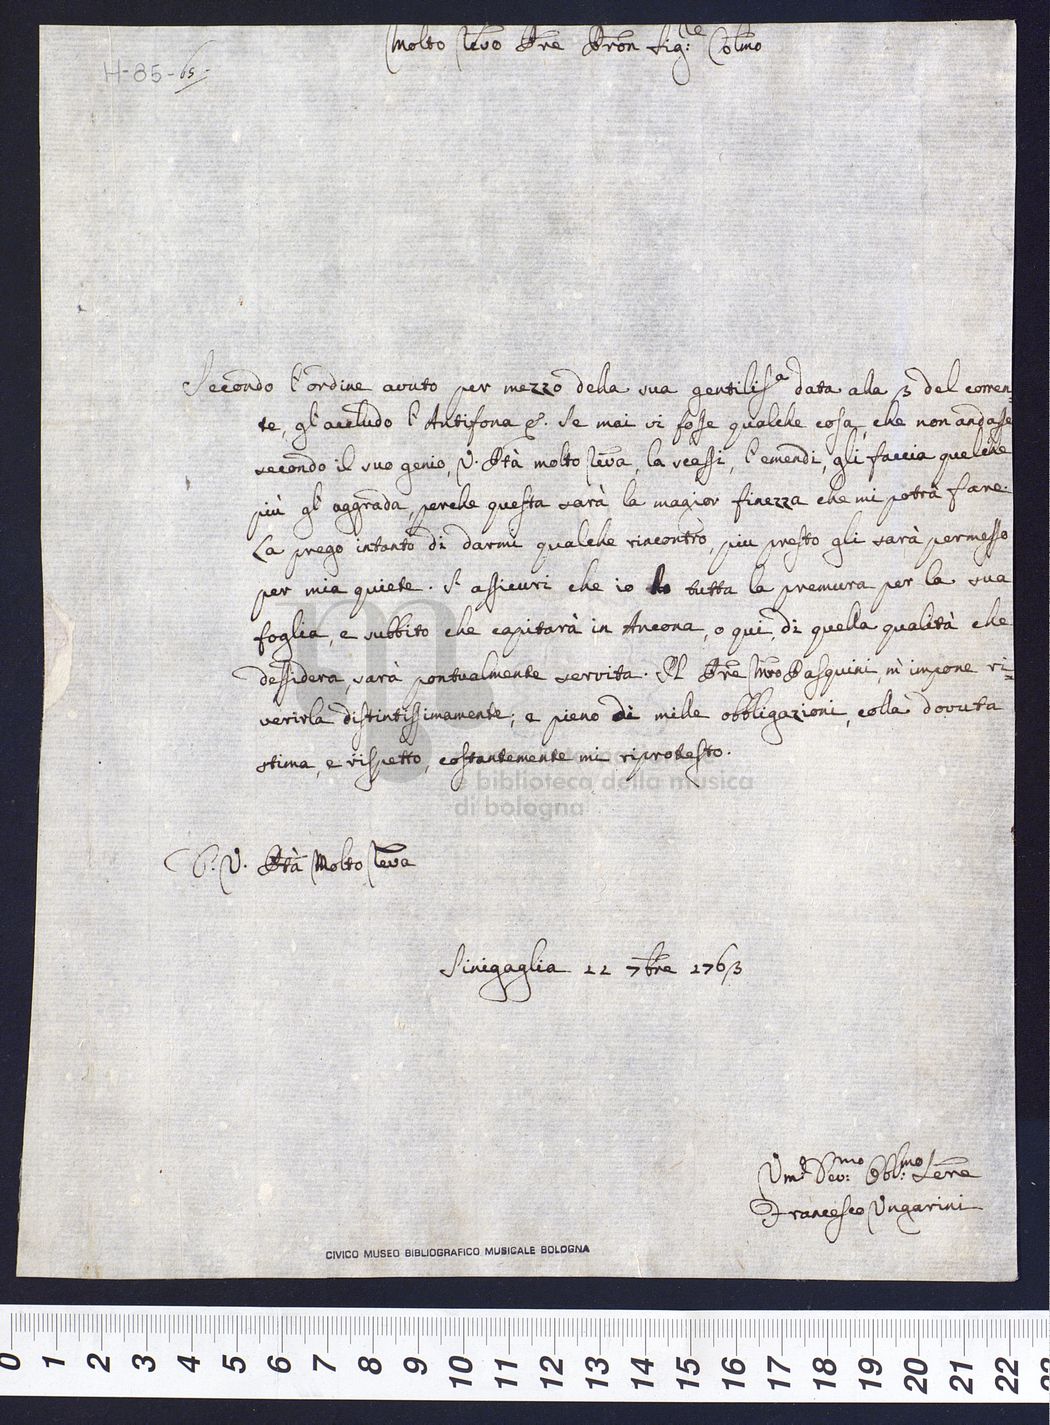 Molto Revo Pre Pron Sig:re Colmo
H-85-65-
Secondo l'ordine avuto per mezzo della sua gentilis.a data alla 3 del corren=
te, gl'accludo l'Antifona &. Se mai vi fosse qualche cosa, che non andasse
secondo il suo genio, V. Ptà molto Reva, la scassi, l'emendi, gli faccia quelche
più gl'aggrada, perche questa sarà la magior finezza che mi potrà fare.
La prego intanto di darmi qualche rincontro, piu presto gli sarà permesso
per mia quiete. Si assicuri che io ho tutta la premura per la sua
foglia, e subbito che capitarà in Ancona, o qui, di quella qualità che
dessidera, sarà pontualmente servita. Il Pre Mro Pasquini, m'impone ri=
verirla distintissimamente; e pieno di mille obbligazioni, colla dovuta
stima, e rispetto, costantemente mi riprotesto.
D. V. Ptà Molto Reva
Sinigaglia 11 7bre 1763
Um:o Dev:mo Obbl:mo Serre
Francesco Ungarini
CIVICO MUSEO BIBLIOGRAFICO MUSICALE BOLOGNA
e biblioteca della musica
di bologna
0 1 2 3 4 5 6 7 8 9 10 11 12 13 14 15 16 17 18 19 20 21 22